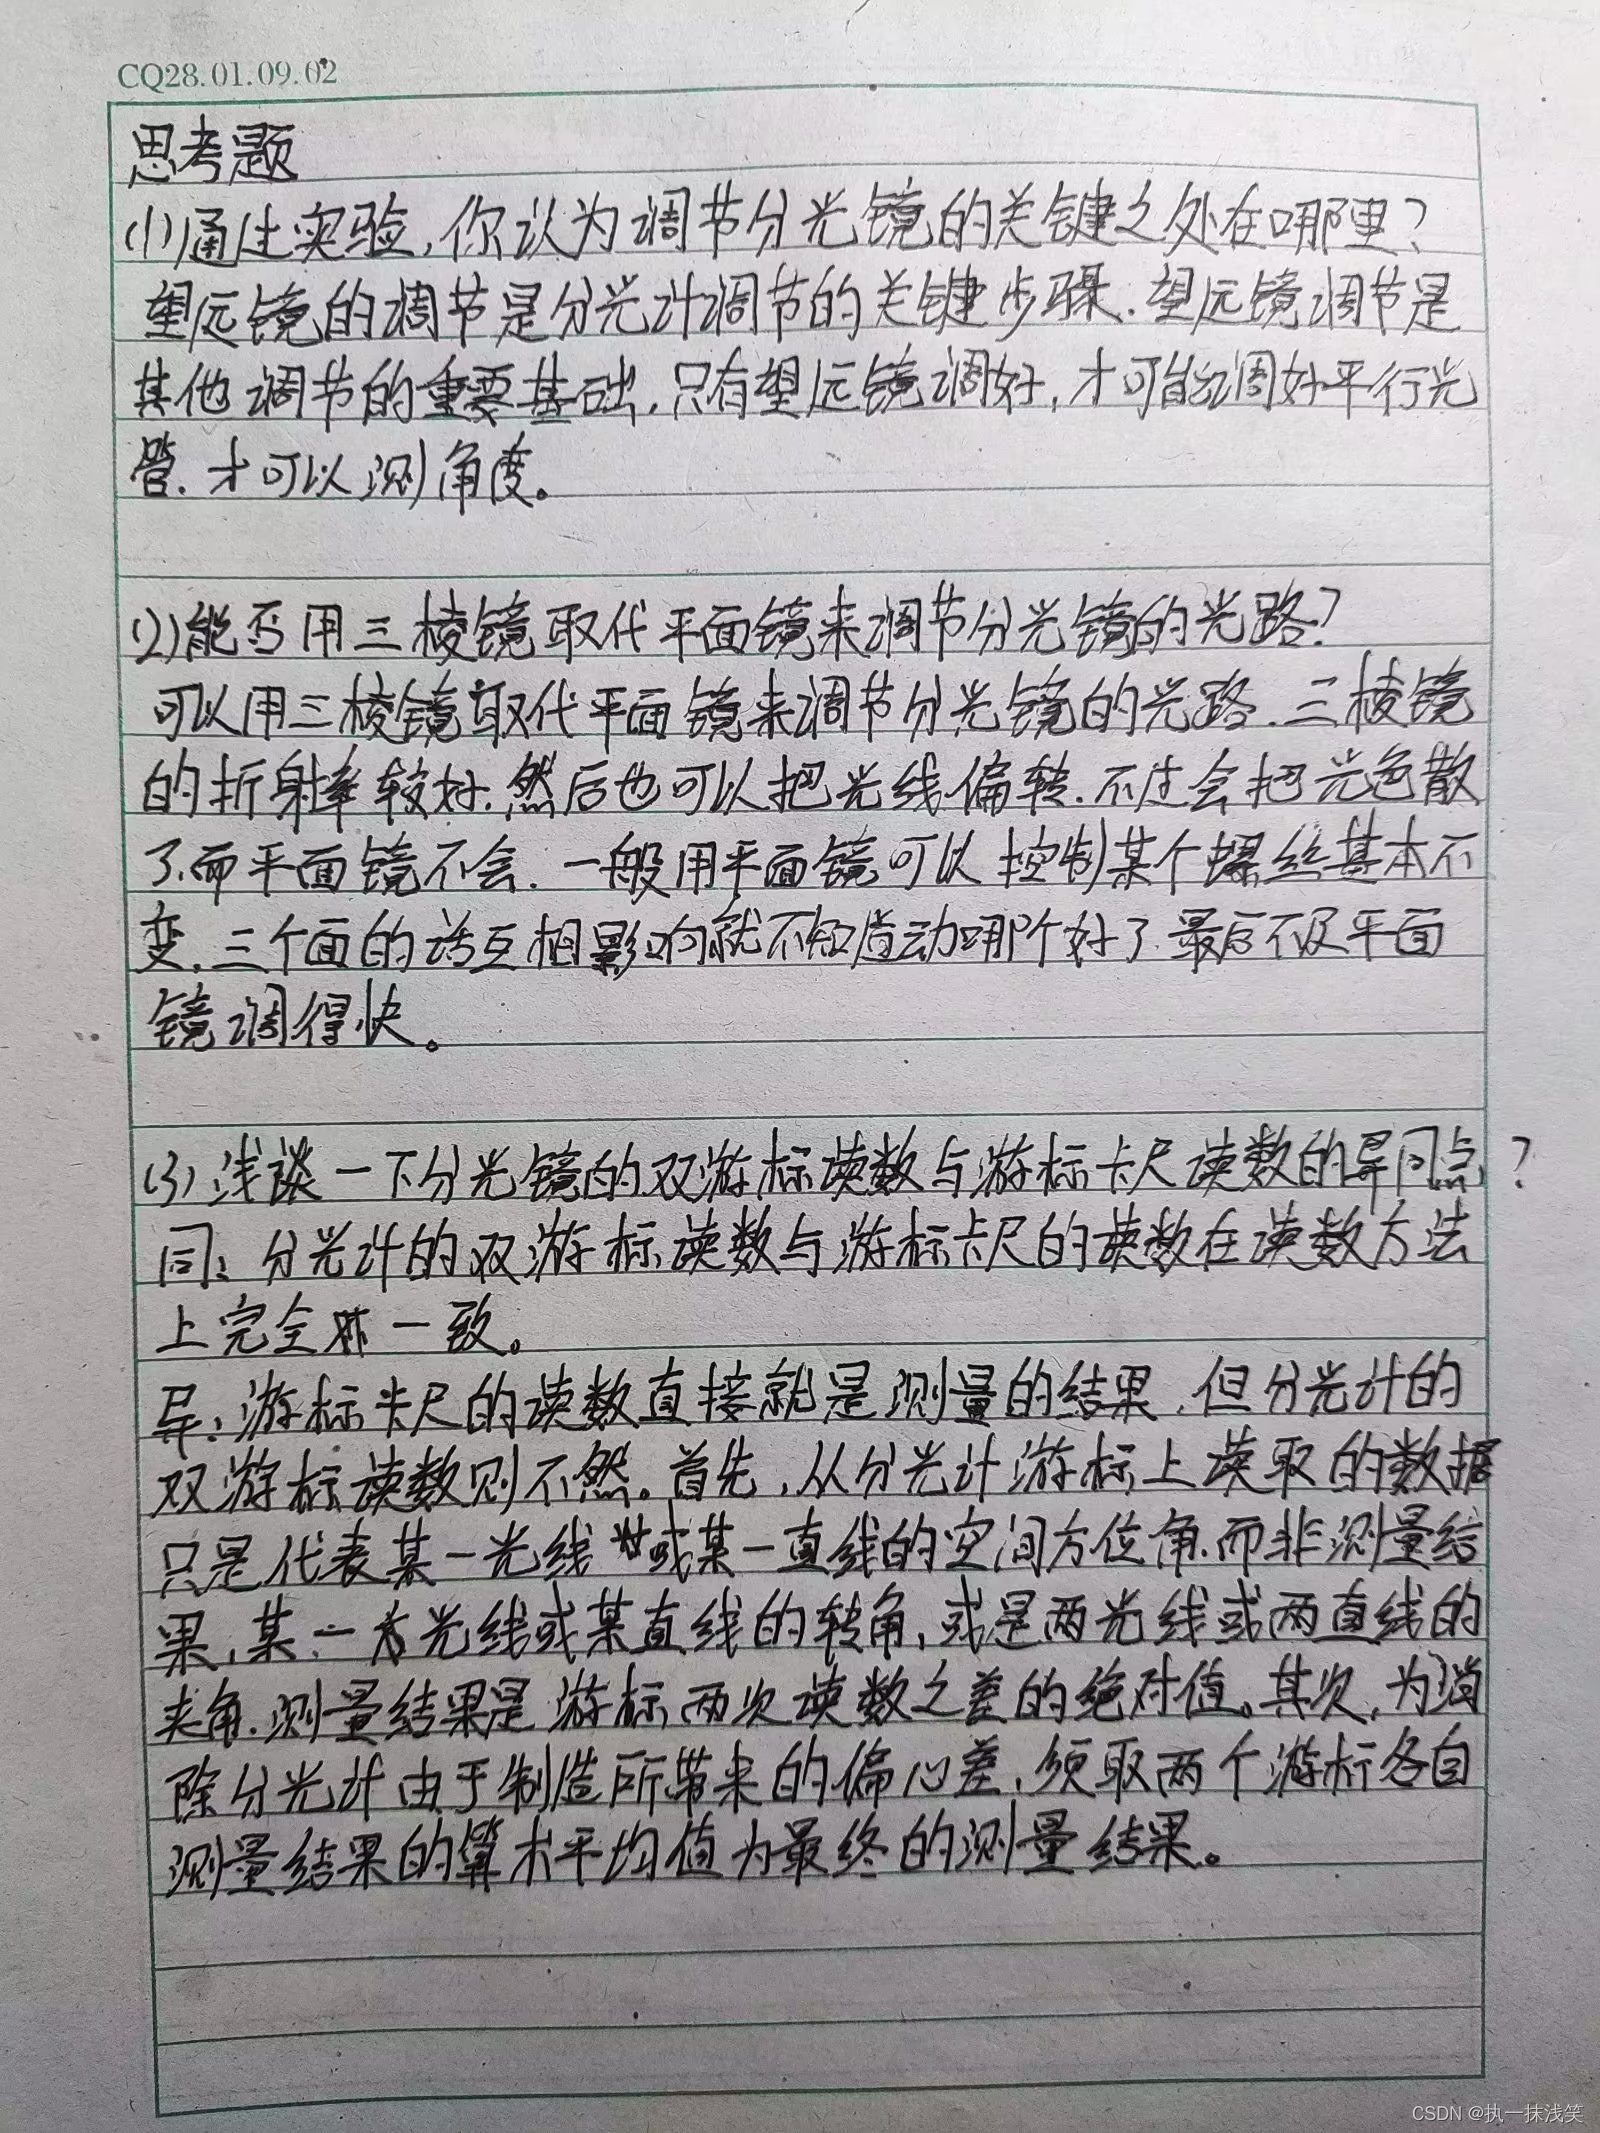 CQ28.01.09.02
思考题
(1)通过实验,你认为调节分光镜的关键之处在哪里?
望远镜的调节是分光计调节的关键步骤.望远镜调节是
其他调节的重要基础,只有望远镜调好,才可能调好平行光
管.才可以测角度。
(2)能否用三棱镜取代平面镜来调节分光镜的光路?
可以用三棱镜取代平面镜来调节分光镜的光路.三棱镜
的折射率较好.然后也可以把光线偏转.不过会把光色散
了.而平面镜不会.一般用平面镜可以控制某个螺丝基本不
变.三个面的话互相影响就不知道动哪个好了.最后不及平面
镜调得快。
(3)浅谈一下分光镜的双游标读数与游标卡尺读数的异同点?
同:分光计的双游标读数与游标卡尺的读数在读数方法
上完全一致。
异:游标卡尺的读数直接就是测量的结果,但分光计的
双游标读数则不然。首先,从分光计游标上读取的数据
只是代表某一光线或某一直线的空间方位角.而非测量结
果,某一光线或某直线的转角,或是两光线或两直线的
夹角.测量结果是游标两次读数之差的绝对值。其次,为消
除分光计由于制造所带来的偏心差,须取两个游标各自
测量结果的算术平均值为最终的测量结果。
CSDN @执一抹浅笑